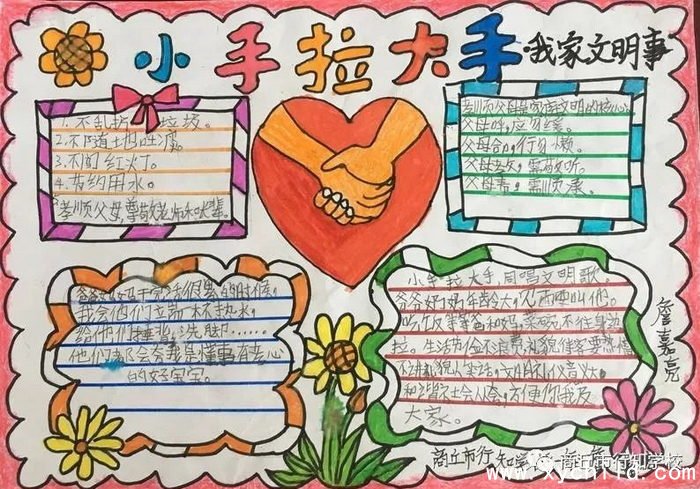 小手拉大手·我家文明事
1.不乱扔垃圾。
2.不随地吐痰。
3.不闯红灯。
4.节约用水。
孝顺父母,尊敬老师和长辈。
孝顺父母是家庭文明的核心
父母呼,应勿缓。
父母命,行勿懒。
父母教,需敬听。
父母责,需顺承。
爸爸妈妈干完活很累的时候,
我会给他们立端一杯热水,
给他们捶背、洗脚……
他们都会夸我是懂事有爱心
的好宝宝。
小手拉大手同唱文明歌。
爸爸妈妈年龄大,
吃饭等爸和妈,
生活节俭不浪费,礼貌待客要热情
和谐社会人人夸,方便你我及
大家。
詹嘉亮
商丘市行知学
商丘市行知学校
www.xychild.com